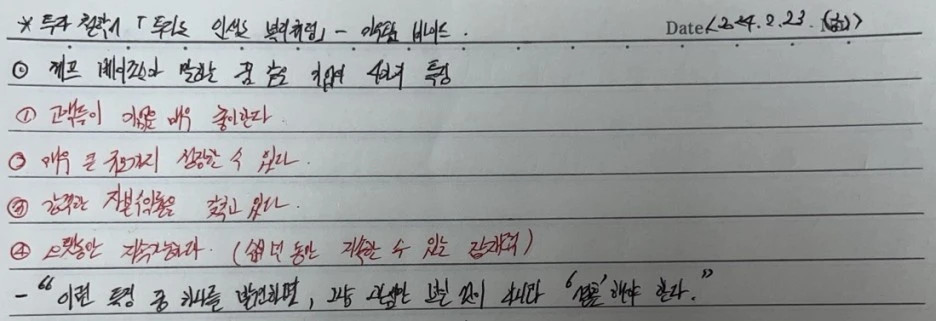 * 투자 철학서 「투자도 인생도 복리처럼」 - 가우탐 바이드. Date <24. 2. 23. (금)>
◎ 제프 베이조스가 말하는 꿈 같은 기업의 4가지 특징
① 고객들이 기업을 매우 좋아한다.
② 매우 큰 규모까지 성장할 수 있다.
③ 강력한 자본수익률을 갖고 있다.
④ 오랫동안 지속가능하다. (수십 년 동안 지속할 수 있는 잠재력)
- "이런 특징 중 하나를 발견하면, 그냥 관심만 보일 것이 아니라 '결혼'해야 한다."